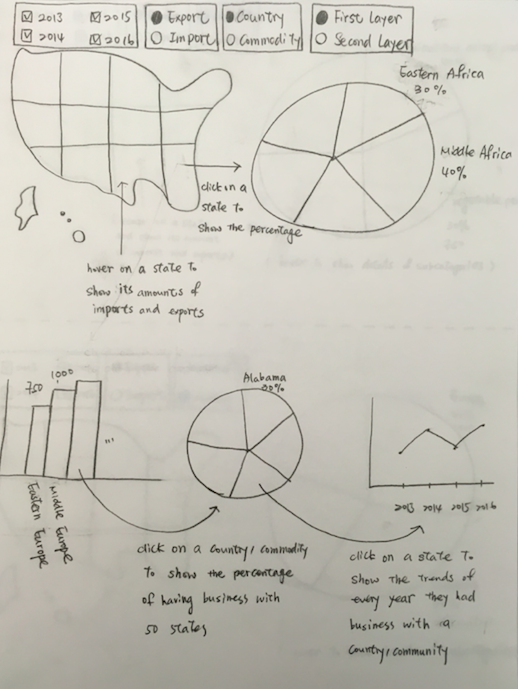 2013 2015
2014 2016
Export
Import
Country
Commodity
First Layer
Second Layer
Eastern Africa
30%
Middle Africa
40%
click on a
state to
show the percentage
hover on a state to
show its amounts of
imports and exports
750
1000
...
Eastern Europe
Middle Europe
Alabama
20%
2013 2014 2015 2016
click on a country/commodity
to show the percentage
of having business with
50 states
click on a state to
show the trends of
every year they had
business with a
country/community